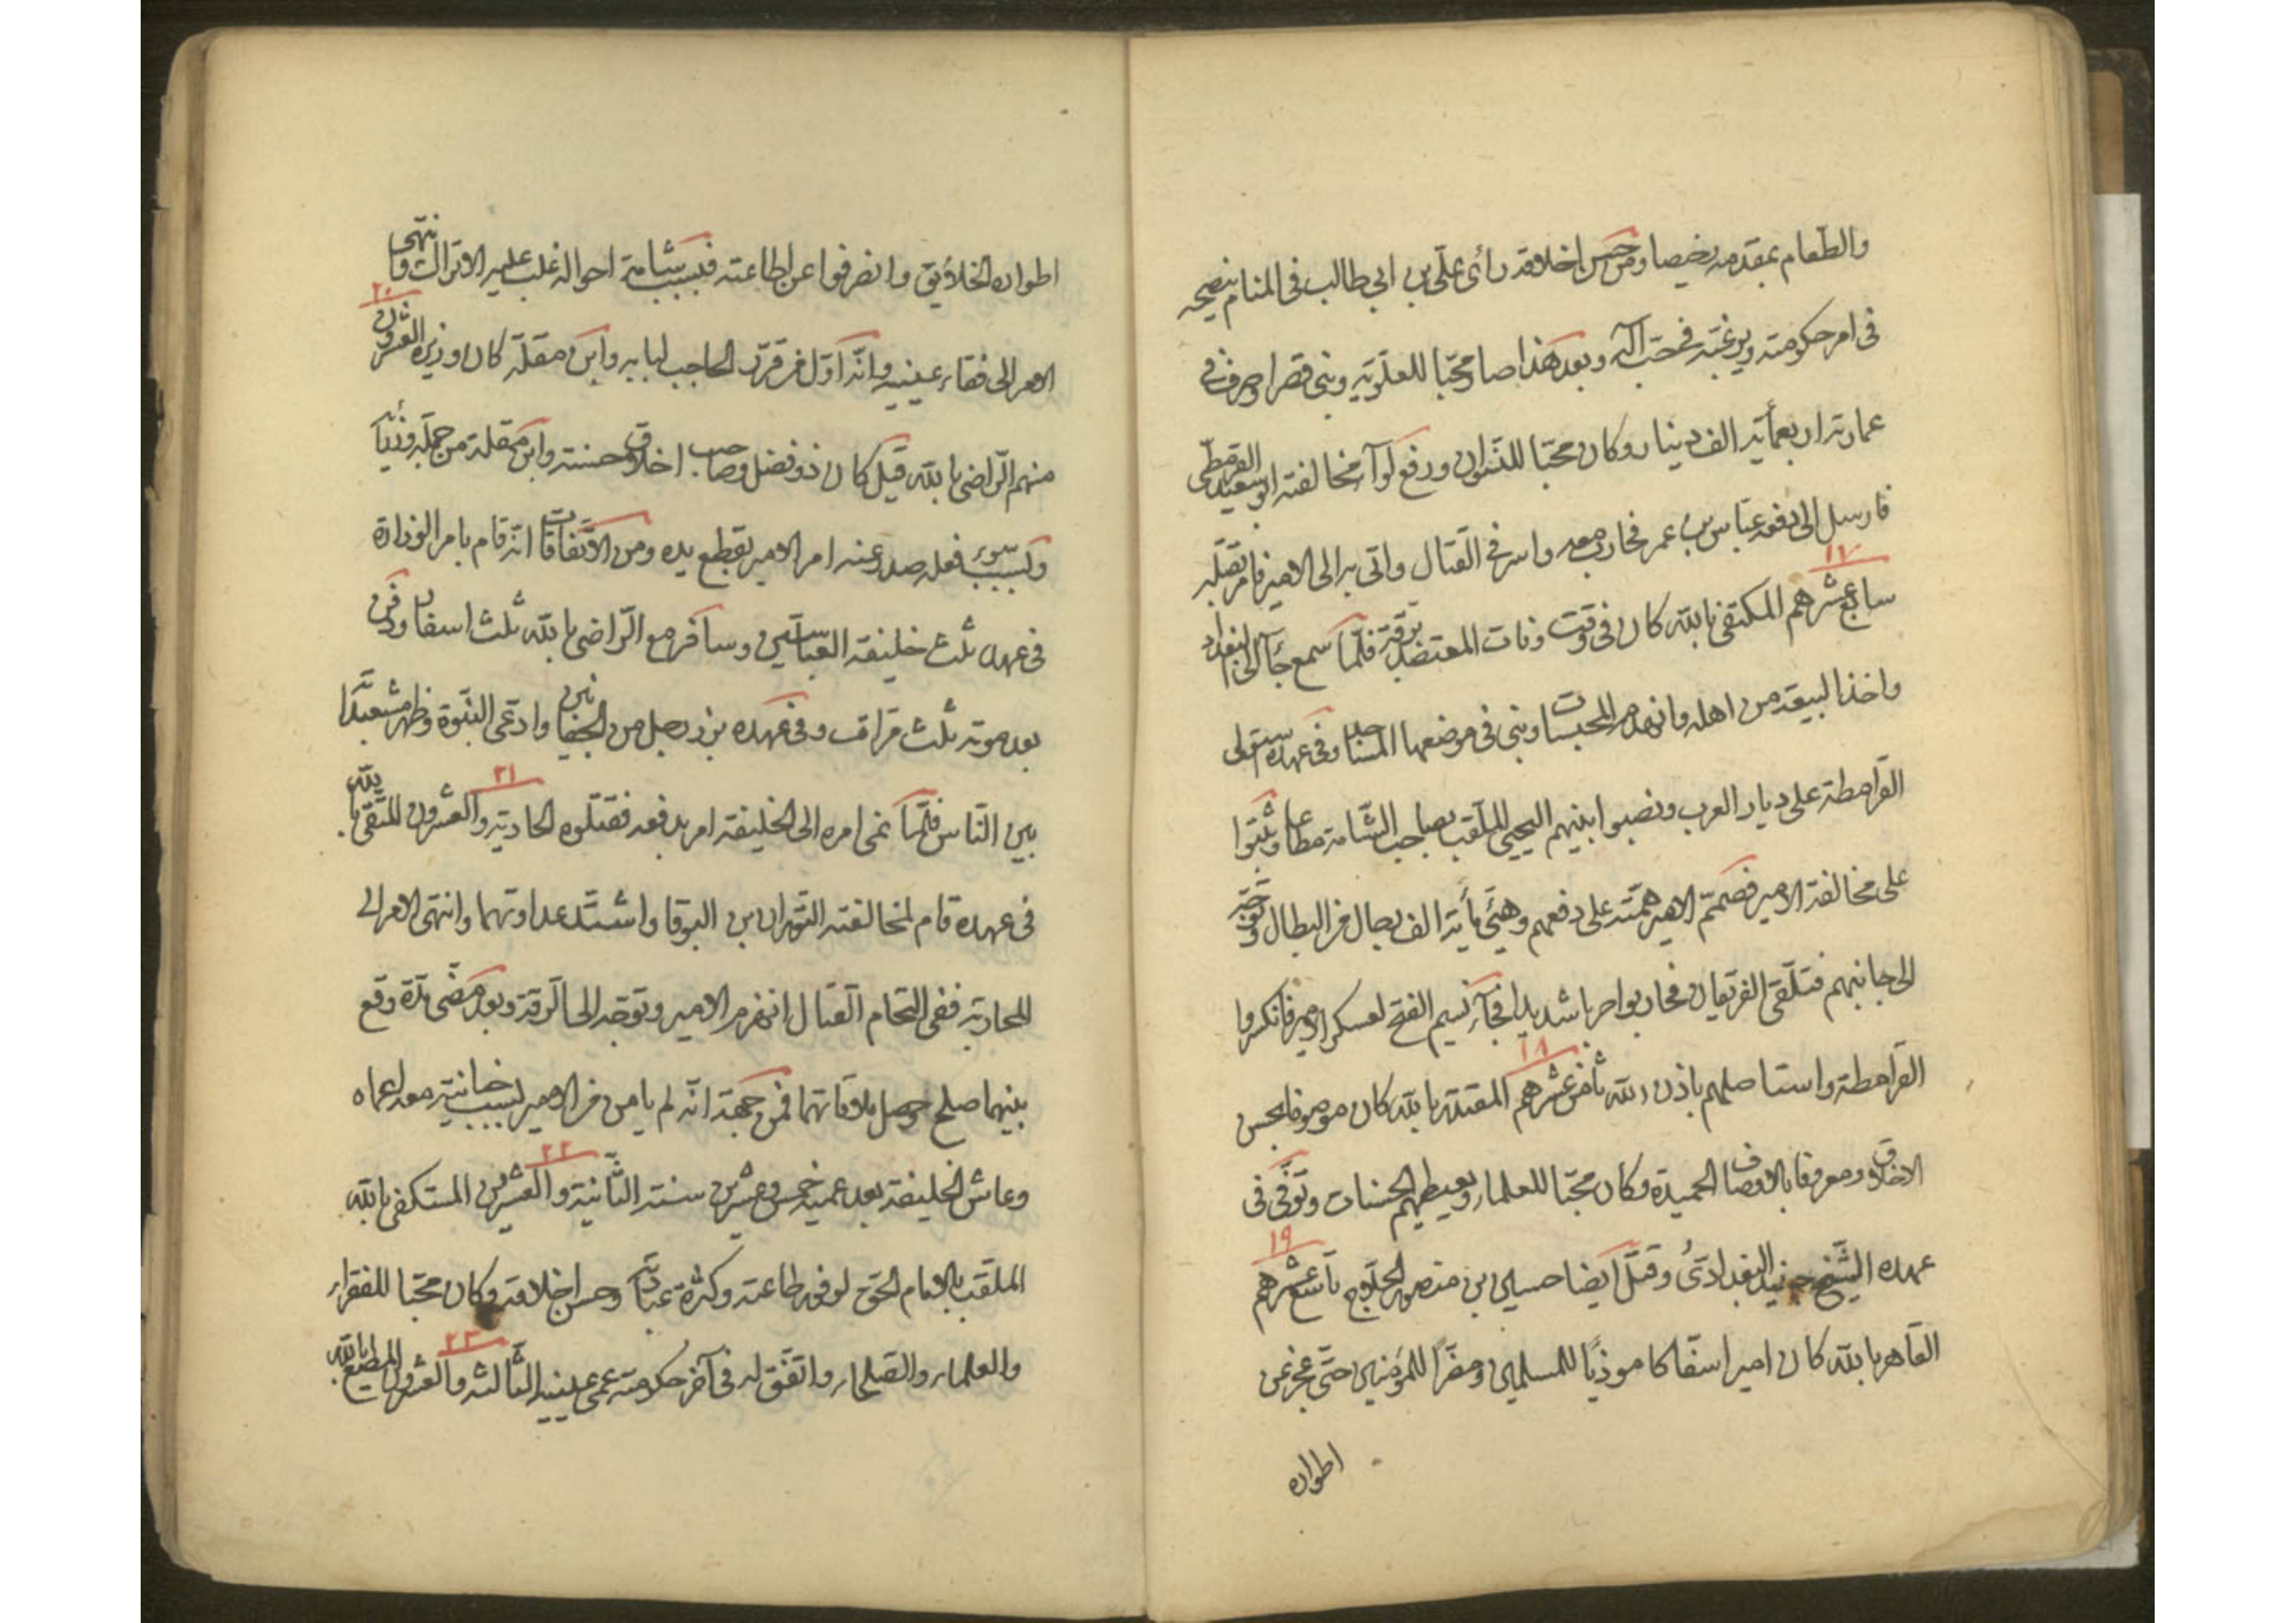 والطعام بمقدمه رخيصا ومن حسن اخلاقه رأى على بن ابى طالب فى المنام ينصحه
فى امر حكومته ويرغبه فحب آله وبعد هذا صار محبا للعلوية وبنى قصرا وصرف فى
عمارته اربعمأية الف دينار وكان محبا للنسوان ورفع لوآء مخالفته ابو سعيد القرمطى
فارسل الى دفعه عباس بن عمر فحارب معه واسر فى القتال واتى به الى الامير فامر بقتله
١٧
سابع عشرهم المكتفى بالله كان فى وقت وفات المعتضد برقة فلما سمع جآء الى البغداد
واخذ البيعة من اهله وانهدم المحبسات وبنى فى موضعها المساجد وفى عهده ستولى
القرامطة على ديار العرب ونصبوا ابنهم اليحيى الملقب بصاحب الشامة مطاعا وثبتوا
على مخالفة الامير فصمم الامير همته على دفعهم وهيئ مأية الف رجال من الابطال وتوجه
الى جانبهم فتلقى الفريقان فحاربوا حربا شديدا فجآء نسيم الفتح لعسكر الامير فانكسروا
القرامطة واستاصلهم باذن الله
١٨
ثامن عشرهم المقتدر بالله كان موصوفا بحسن
الاخلاق ومعروفا بالاوصاف الحميدة وكان محبا للعلماء ويعطيهم الحسنات وتوفى فى
عهده الشيخ جنيد البغدادى وقتل ايضا حسين بن منصور الحلاج
١٩
تاسع عشرهم
القاهر بالله كان امير اسفاكا موذيا للمسلمين ومضرا للمؤمنين حتى عجز عن
اطواره
اطواره الخلايق وانصرفوا عن اطاعته فبسبب شامة احواله غلب عليه الاتراك وانتهى
الامر الى فقاء عينيه وانه اول من قرر الحاجب لبابه وابن مقلة كان وزيره
٢٠
العشرون
منهم الراضى بالله قيل كان ذو فضل وصاحب اخلاق حسنة وابن مقلة من جملة وزرائه
وبسبب سوء فعله صدر عنه امر الامير بقطع يده ومن الاتفاقات انه قام بامر الوزارة
فى عهد ثلث خليفة العباسيين وسافر مع الراضى بالله ثلث اسفار ودفن
بعد موته ثلث مرات وفى عهده برز رجل من وادعى النبوة وظهر مشعبدا
بين الناس فلما نمى امره الى الخليفة امر بدفعه فقتلوه
٢١
الحادية والعشرون المتقى بالله
فى عهده قام لمخالفته التوران بن البوقا واشتد عداوتهما وانتهى الامر الى
المحاربة ففى التحام القتال انهزم الامير وتوجه الى الرقة وبعد مضى مدة وقع
بينهما صلح وحصل ملاقاتهما فمن جهة انه لم يامن من الامير بسبب خيانته معه اعماه
وعاش الخليفة بعد عميه خمس وعشرين سنة
٢٢
الثانية والعشرين المستكفى بالله
الملقب بالامام الحق لوفور طاعته وكثرة عبادته وحسن اخلاقه وكان محبا للفقراء
والعلماء والصلحاء واتفق له فى آخر حكومته عمى عينيه
٢٣
الثالثه والعشرون المطيع بالله